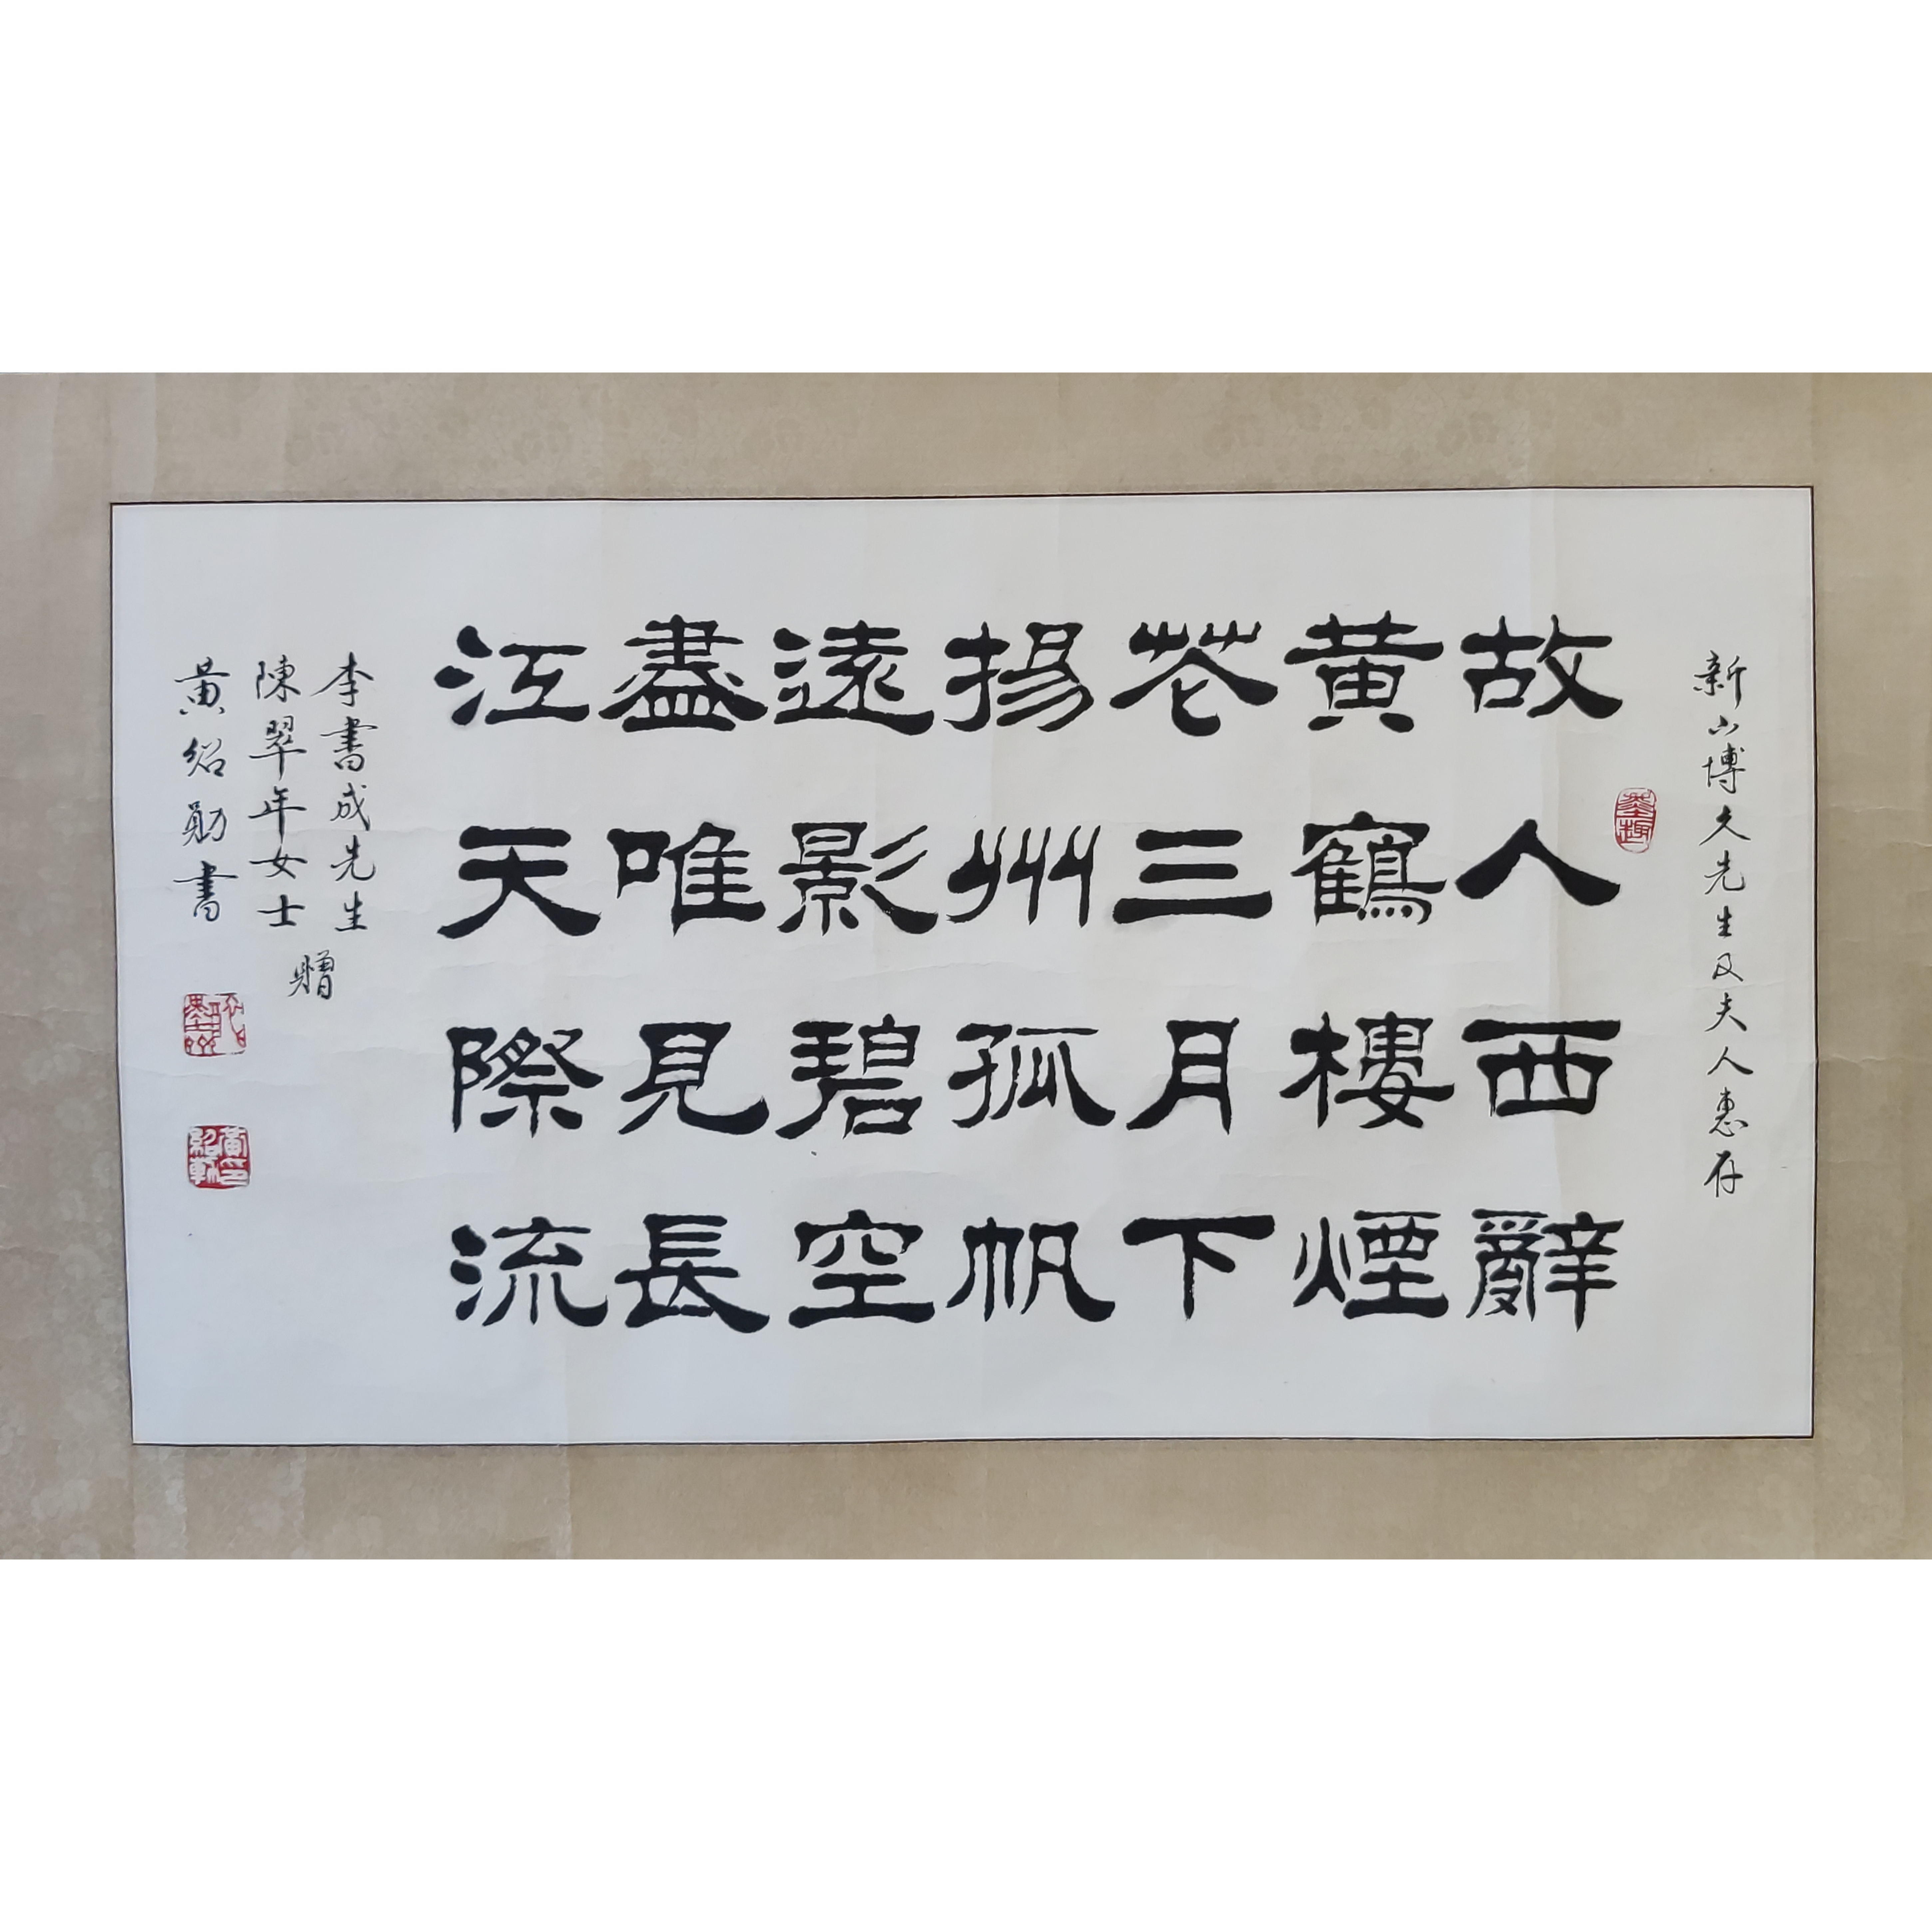 新山博久先生及夫人惠存
墨趣
故人西辭
黃鶴樓煙
花三月下
揚州孤帆
遠影碧空
盡唯見長
江天際流
李書成先生
陳翠年女士
贈
黃紹勛書